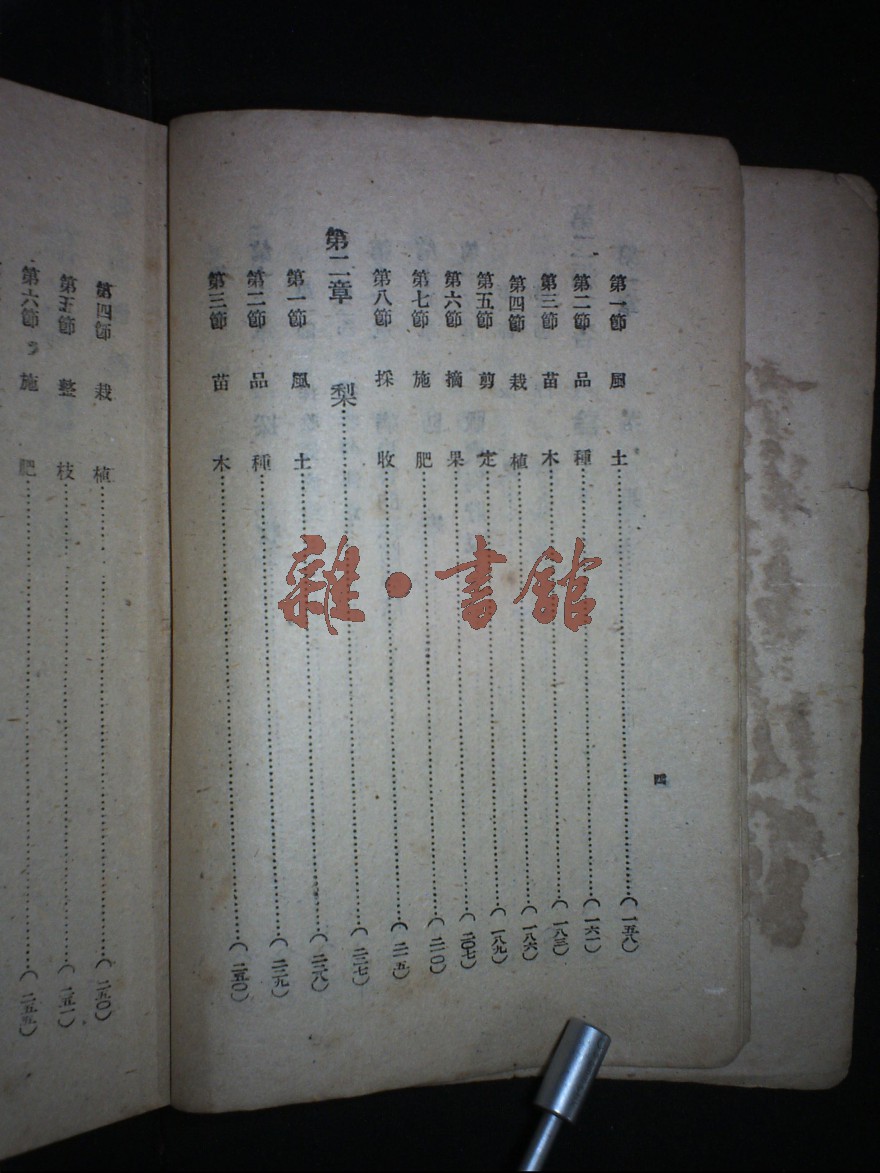 四
第一節　風　土……(一五八)
第二節　品　種……(一六一)
第三節　苗　木……(一八三)
第四節　栽　植……(一八六)
第五節　剪　定……(一八九)
第六節　摘　果……(二〇七)
第七節　施　肥……(二一〇)
第八節　採　收……(二一五)
第二章　梨……(二二七)
第一節　風　土……(二二八)
第二節　品　種……(二二九)
第三節　苗　木……(二五〇)
第四節　栽　植……(二五〇)
第五節　整　枝……(二五一)
第六節　施　肥……(二五五)
雜·書館